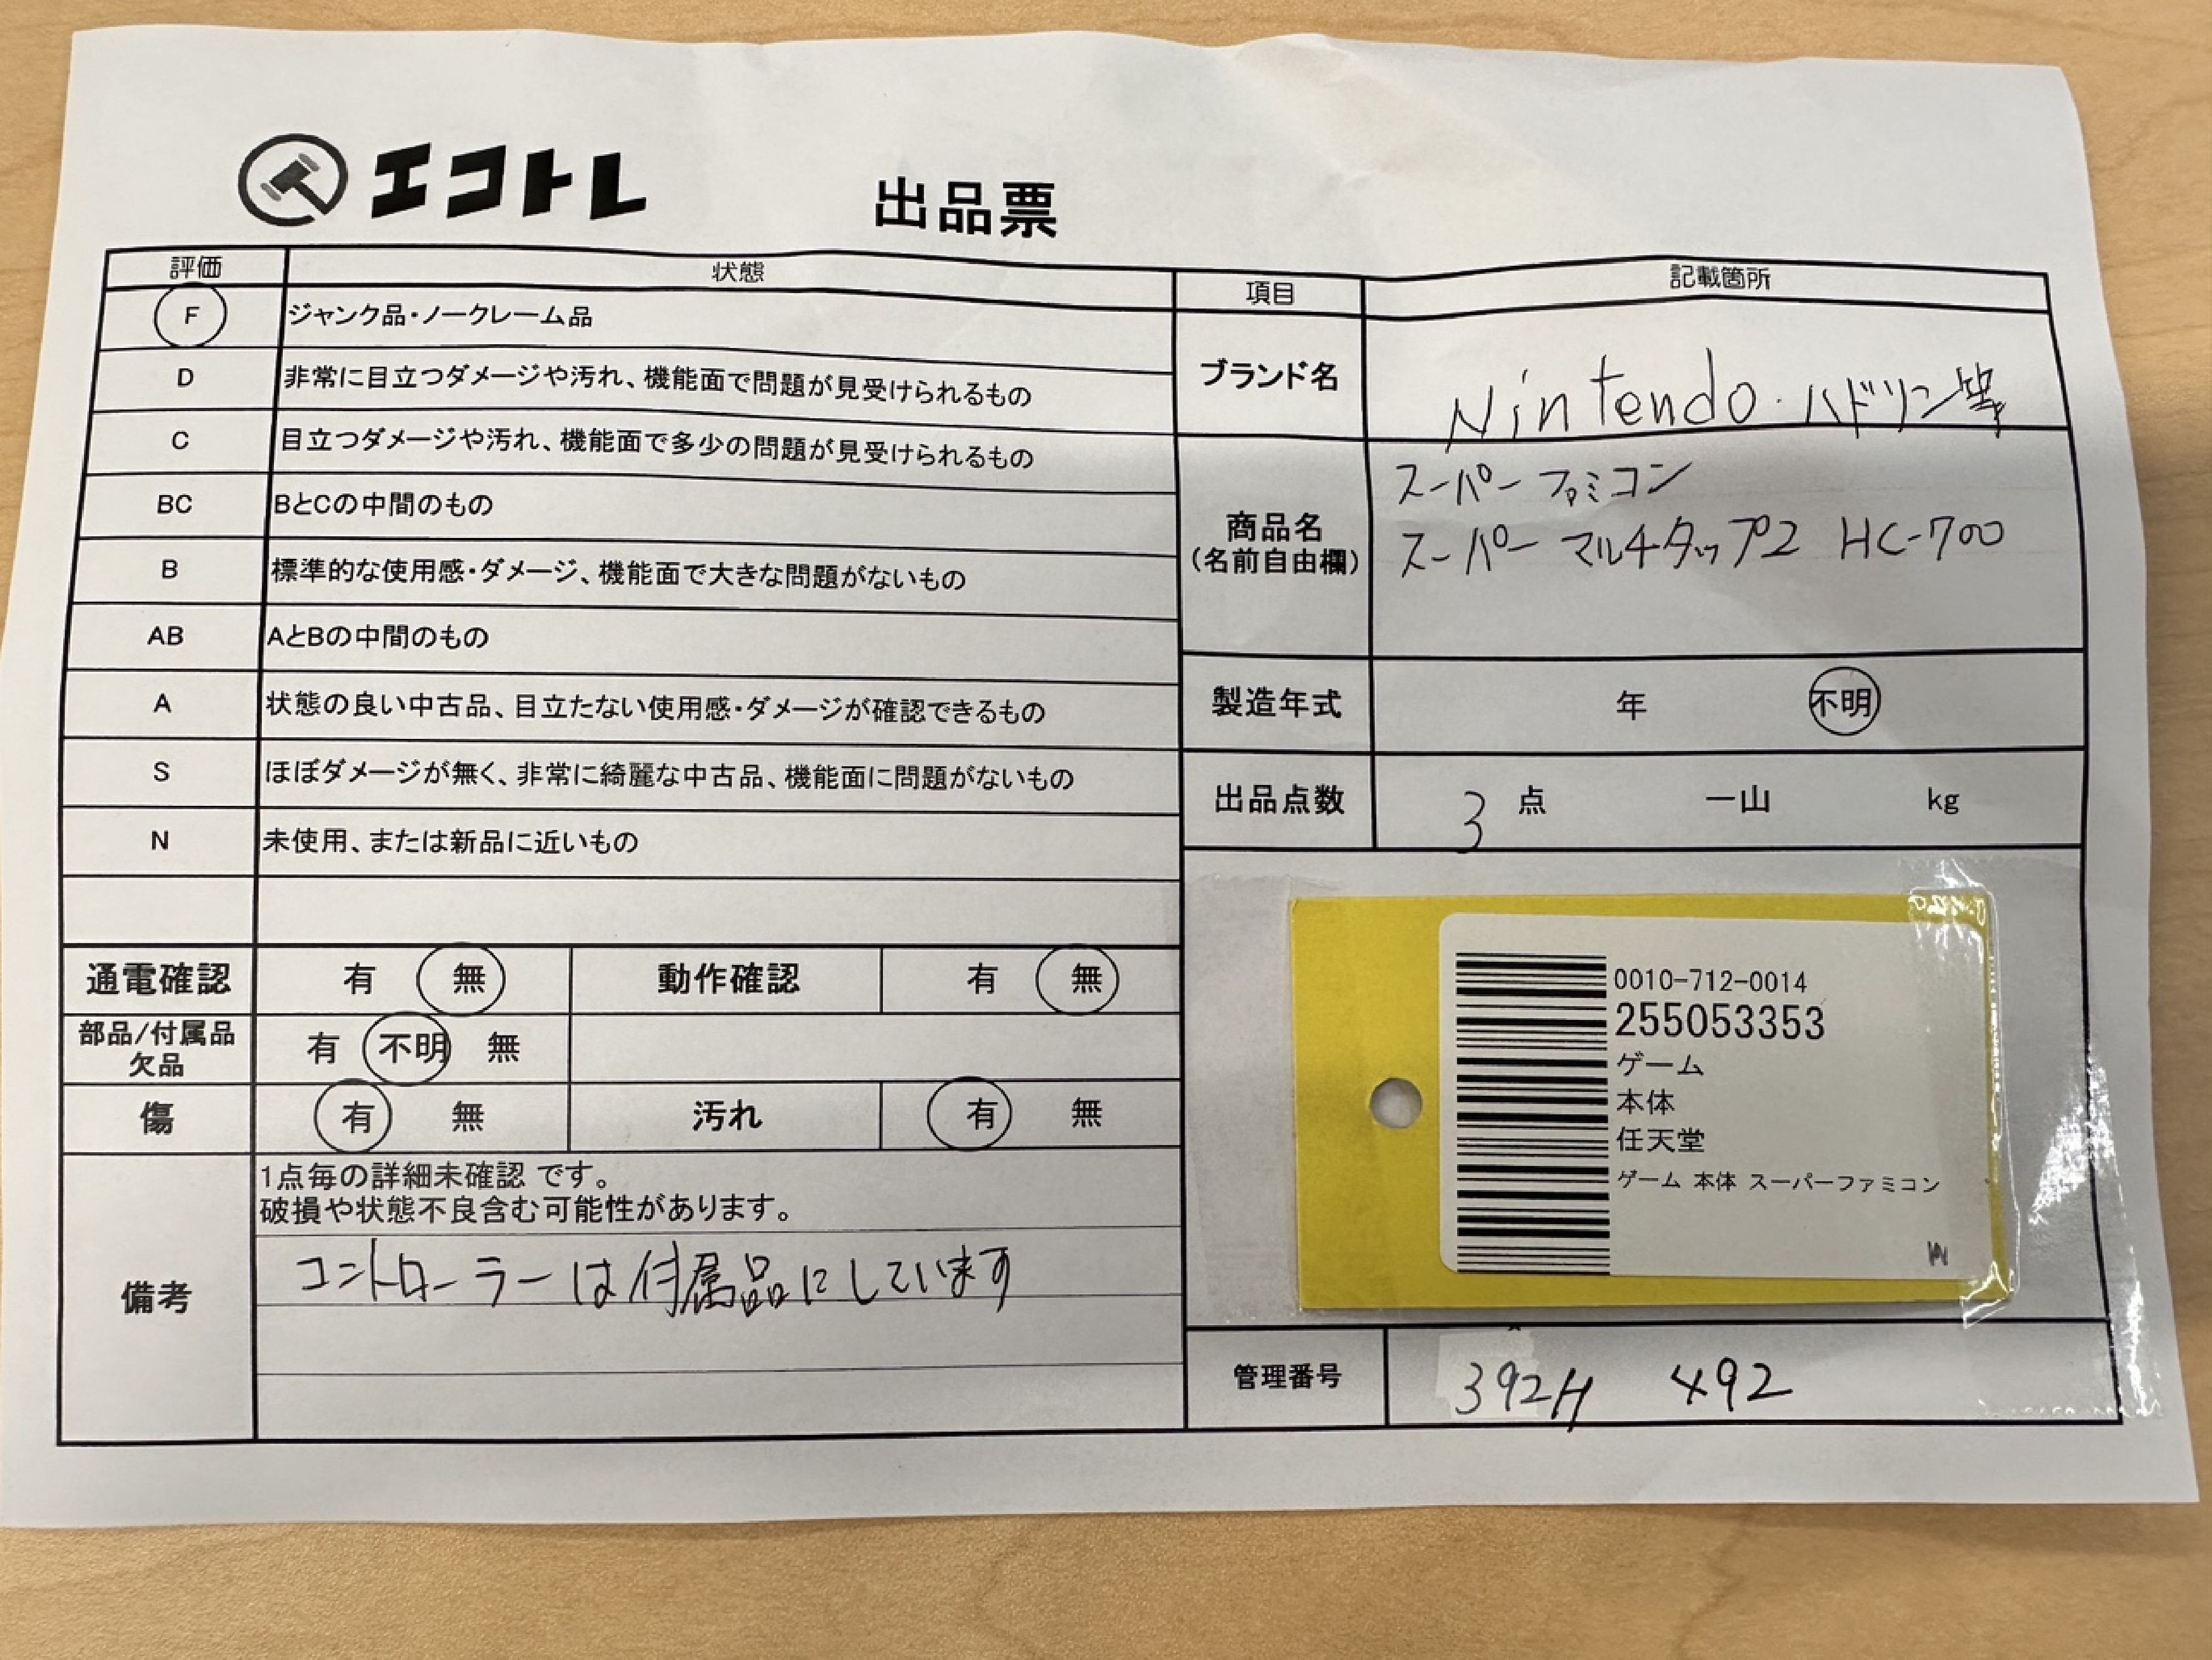 エコトレ
出品票
評価 状態
F ジャンク品・ノークレーム品
D 非常に目立つダメージや汚れ、機能面で問題が見受けられるもの
C 目立つダメージや汚れ、機能面で多少の問題が見受けられるもの
BC BとCの中間のもの
B 標準的な使用感・ダメージ、機能面で大きな問題がないもの
AB AとBの中間のもの
A 状態の良い中古品、目立たない使用感・ダメージが確認できるもの
S ほぼダメージが無く、非常に綺麗な中古品、機能面に問題がないもの
N 未使用、または新品に近いもの
通電確認 有 無 動作確認 有 無
部品/付属品
欠品
有 不明 無
傷 有 無 汚れ 有 無
備考
1点毎の詳細未確認 です。
破損や状態不良含む可能性があります。
コントローラーは付属品にしています
項目 記載箇所
ブランド名 Nintendo・ハドソン等
商品名
(名前自由欄)
スーパーファミコン
スーパーマルチタップ2 HC-700
製造年式 年 不明
出品点数 3 点 一山 kg
0010-712-0014
255053353
ゲーム
本体
任天堂
ゲーム 本体 スーパーファミコン
管理番号 392H 492